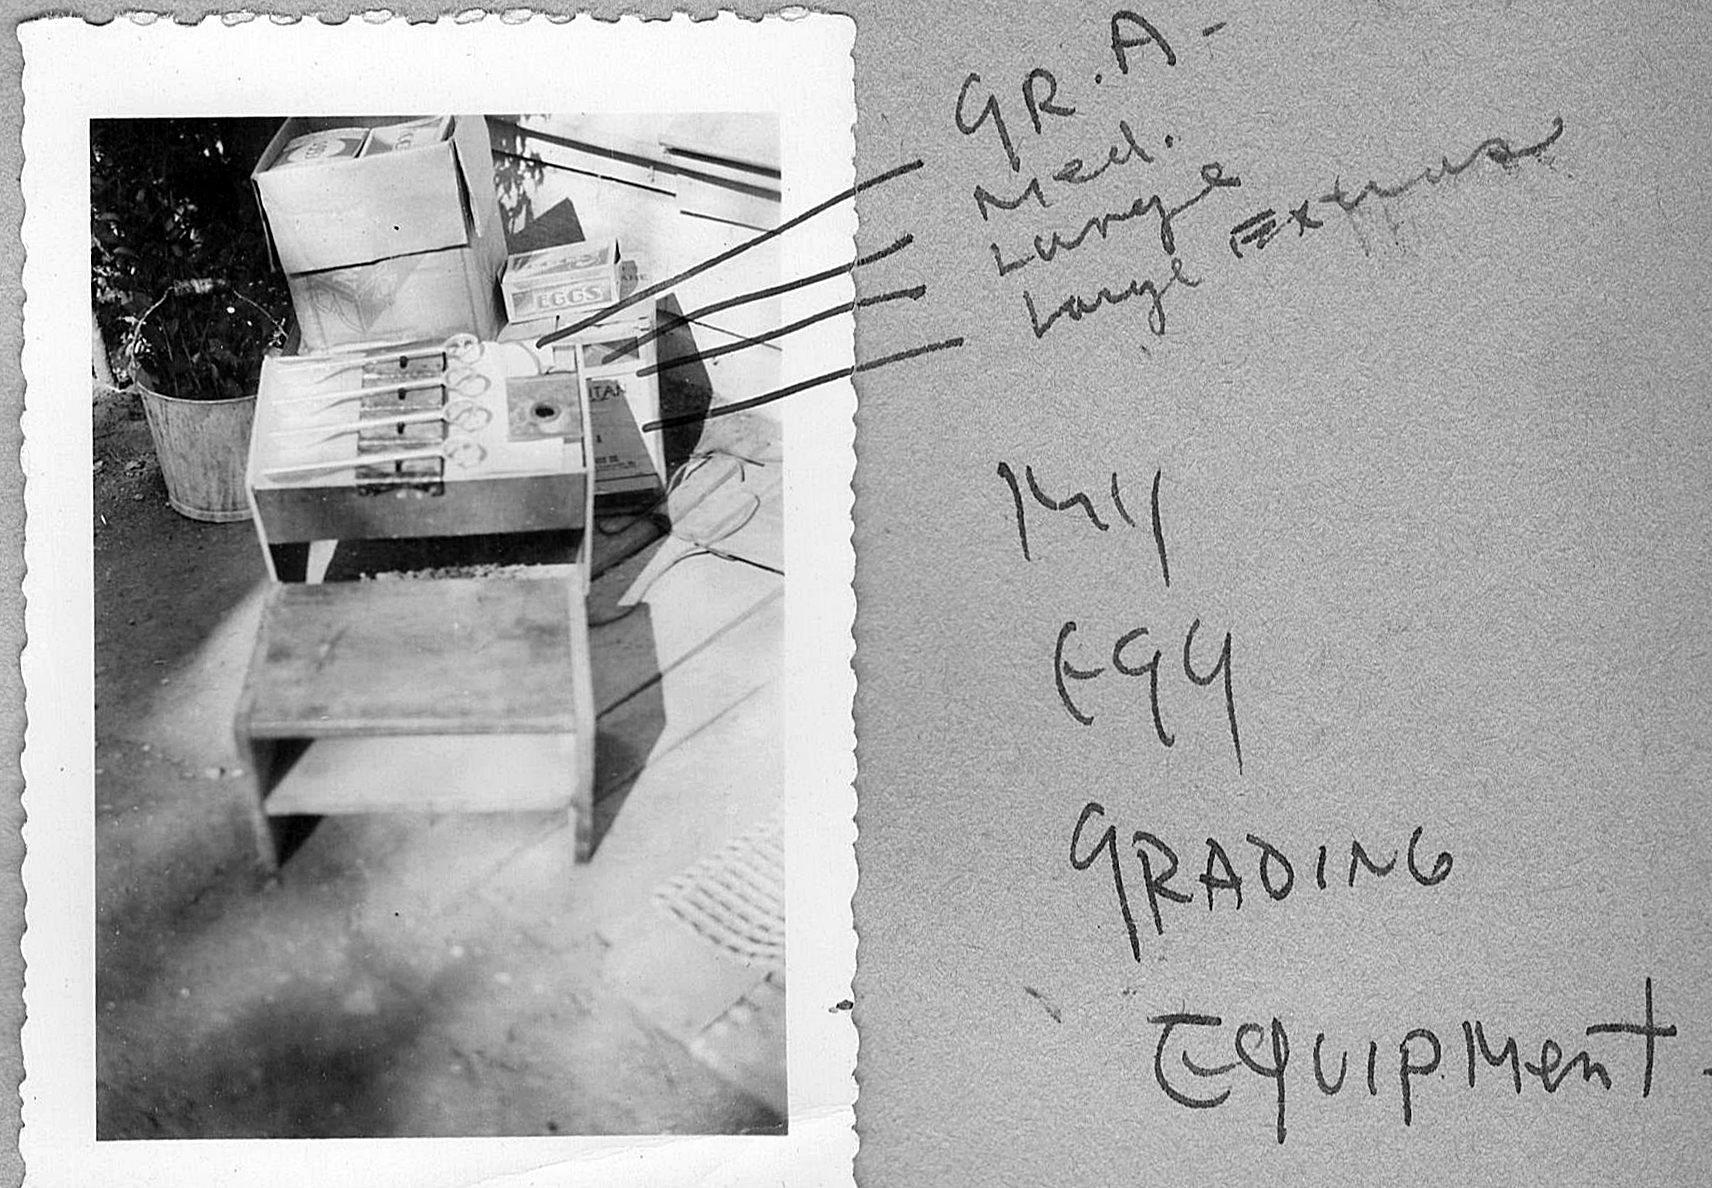 GR. A -
Med.
Large
Large Extras
EGGS
MY
EGG
GRADING
EQUIPMent.